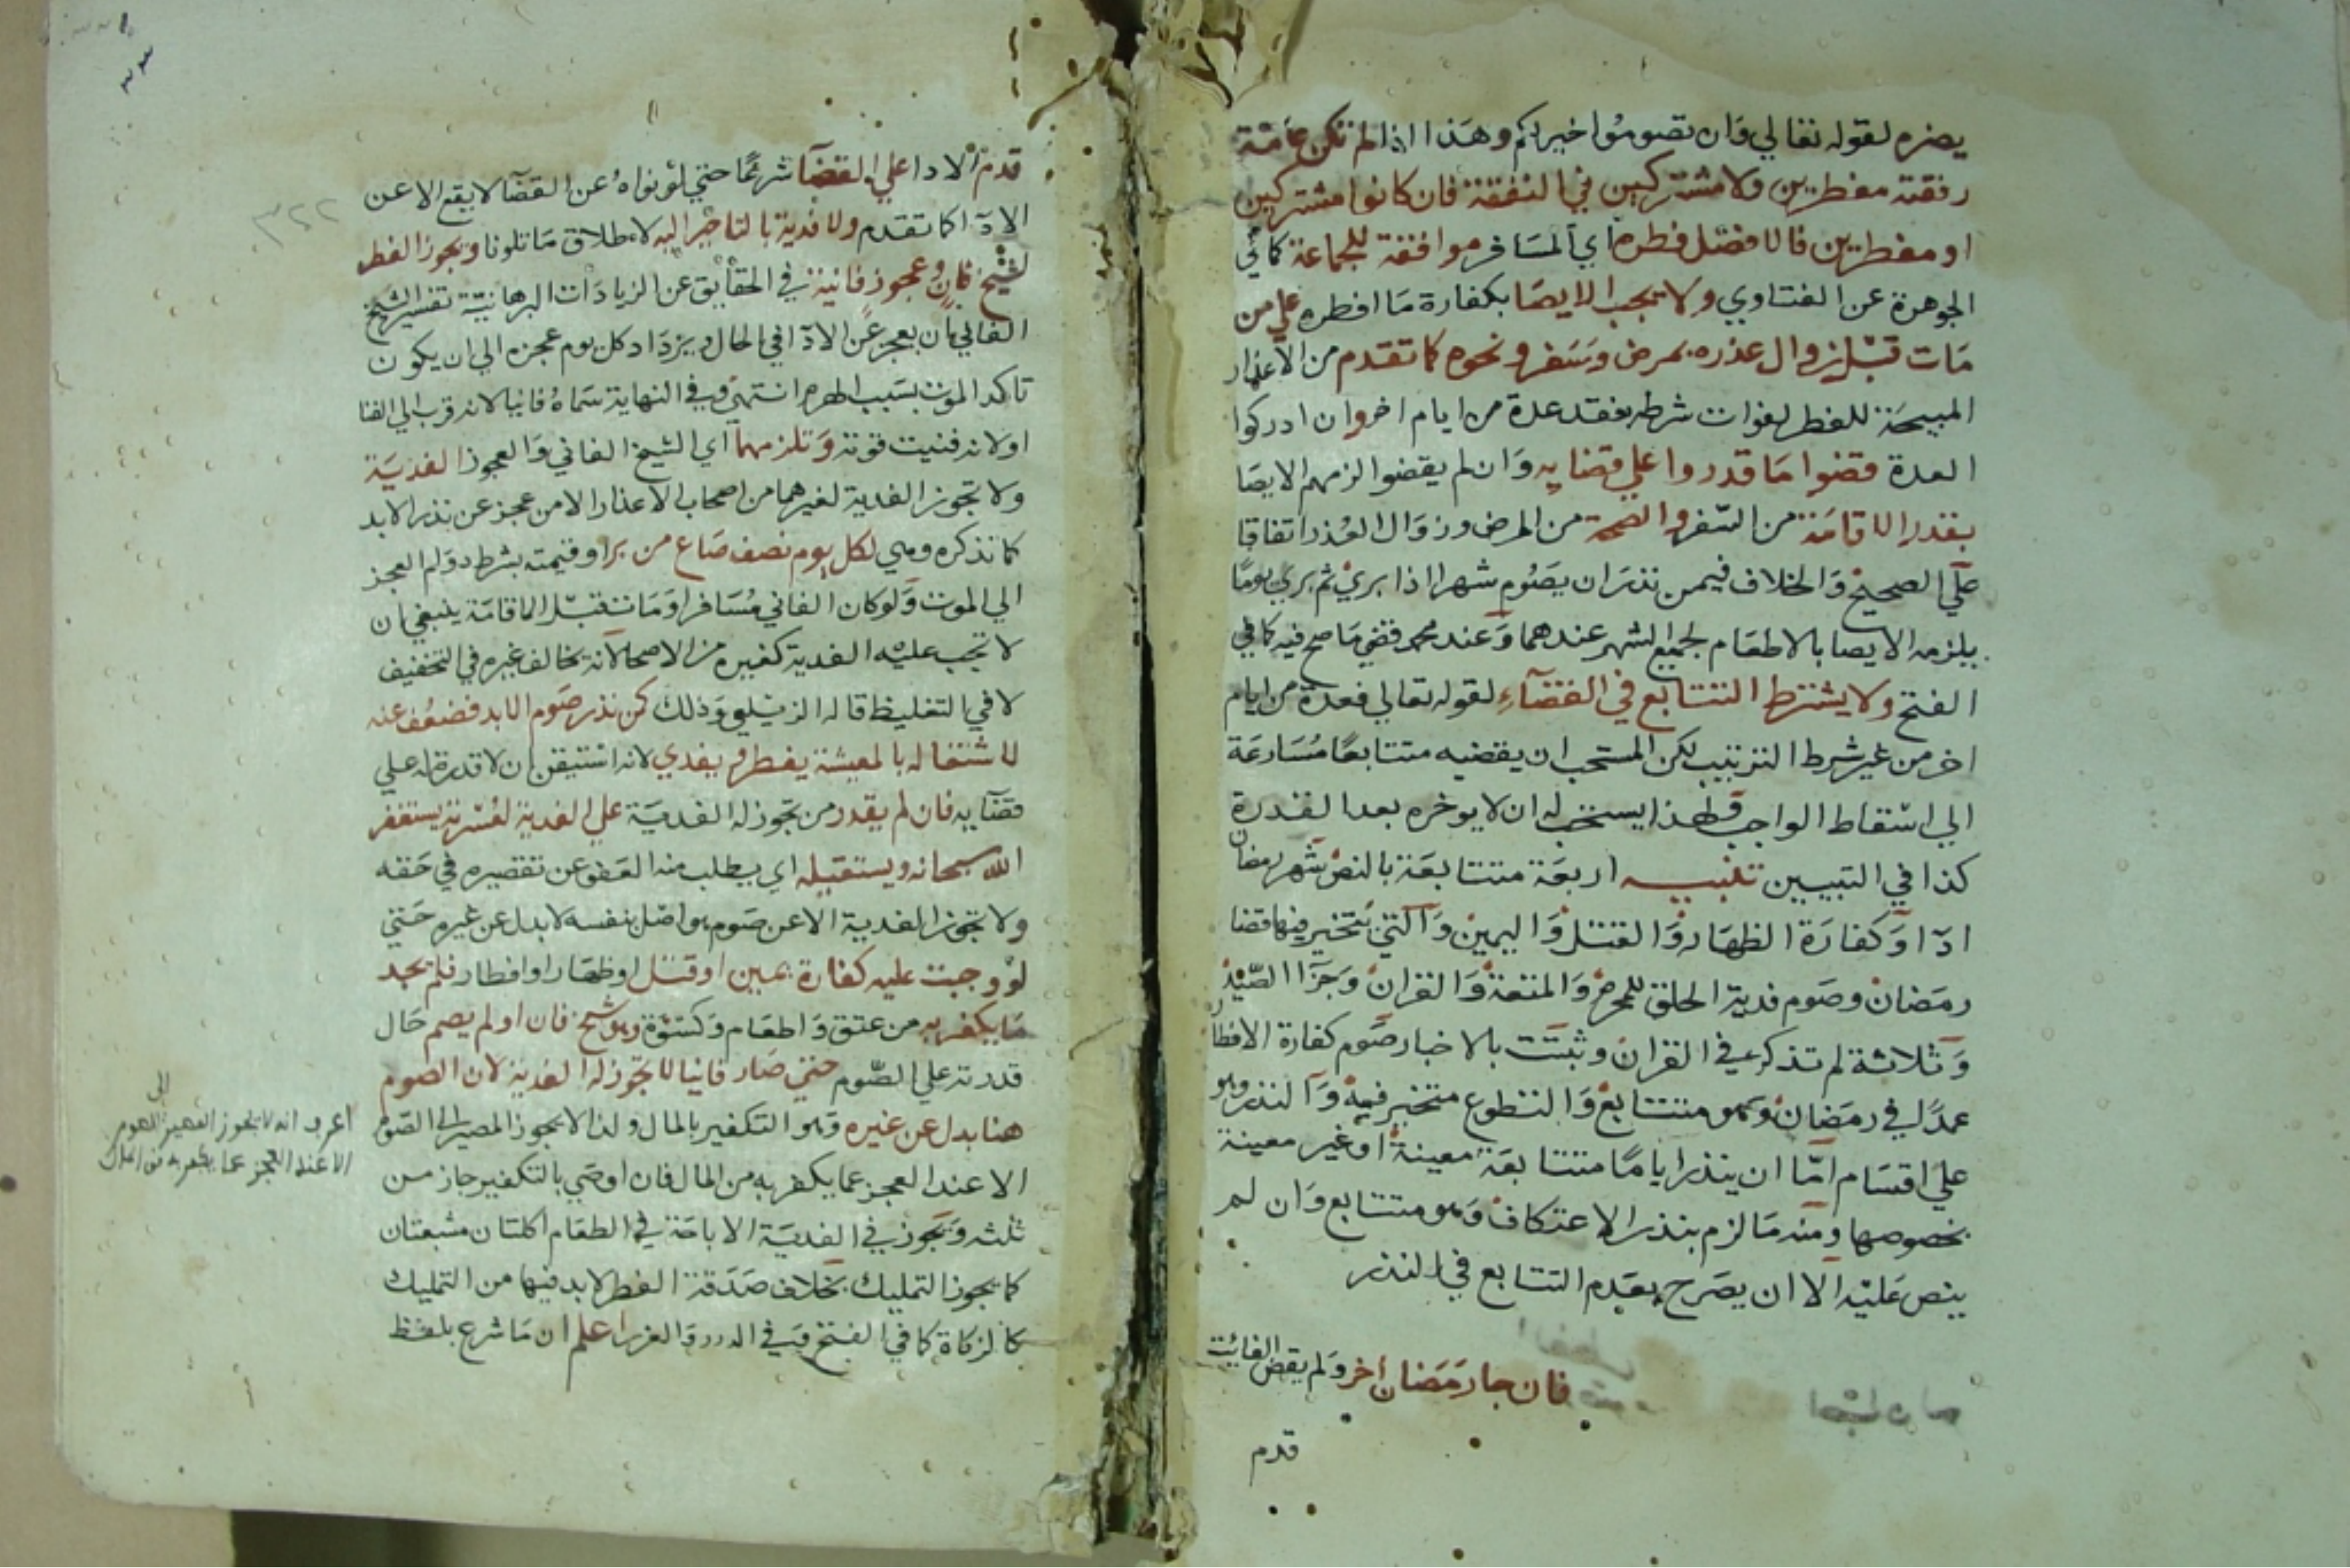 يضره لقوله تعالي وان تصوموا خير لكم وهذا اذا لم تكن عامة
رفقته مفطرين ولا مشتركين في النفقة فان كانوا مشتركين
او مفطرين فالافضل فطره اي المسافر موافقة للجماعة كما في
الجوهرة عن الفتاوي ولا يجب الايصا بكفارة ما افطره علي من
مات قبل زوال عذره بمرض وسفر ونحوه كما تقدم من الاعذار
المبيحة للفطر لفوات شرطه فقد عدة من ايام اخر وان ادركوا
العدة قضوا ما قدروا علي قضايه وان لم يقضوا لزمهم الايصا
بقدر الاقامة من السفر والصحة من المرض وزوال العذر اتفاقا
علي الصحيح والخلاف فيمن نذر ان يصوم شهرا اذا بري ثم بري يوما
يلزمه الايصا بالاطعام لجميع الشهر عندهما وعند محمد قضي ما صح فيه كما في
الفتح ولا يشترط التتابع في القضآء لقوله تعالي فعدة من ايام
اخر من غير شرط الترتيب لكن المستحب ان يقضيه متتابعا مسارعة
الي اسقاط الواجب فلهذا يستحب له ان لا يوخره بعد القدرة
كذا في التبيين تنبيه اربعة متتابعة بالنص شهر رمضان
ادآ وكفارة الظهار والقتل واليمين والتي يتخير فيها قضا
رمضان وصوم فدية الحلق للمحرم والمتعة والقران وجزا الصيد
وثلاثة لم تذكر في القران وثبتت بالاخبار صوم كفارة الافطار
عمدا في رمضان وهو متتابع والتطوع متخير فيه والنذر وهو
علي اقسام اما ان ينذر اياما متتابعة معينة او غير معينة
بخصوصها ومنه ما لزم بنذر الاعتكاف وهو متتابع وان لم
ينص عليه الا ان يصرح بعدم التتابع في النذر
فان جا رمضان اخر ولم يقض الفائت
قدم
قدم الادا علي القضآ شرعا حتي لو نواه عن القضآ لا يقع الا عن
الادآ كما تقدم ولا فدية بالتاخير اليه لاطلاق ما تلونا ويجوز الفطر
لشيخ فان وعجوز فانية في الحقايق عن الزيادات البرهانية تفسير الشيخ
الفاني ان يعجز عن الادآ في الحال ويزداد كل يوم عجزه الي ان يكون
تاكد الموت بسبب الهرم انتهي وفي النهاية سماه فانيا لانه قرب الي الفنا
او لانه فنيت قوته وتلزمهما اي الشيخ الفاني والعجوز الفدية
ولا تجوز الفدية لغيرهما من اصحاب الاعذار الا من عجز عن نذر الابد
كما نذكره وهي لكل يوم نصف صاع من بر او قيمته بشرط دوام العجز
الي الموت ولو كان الفاني مسافرا ومات قبل الاقامة ينبغي ان
لا تجب عليه الفدية كغيره من الاصحا لانه يخالف غيره في التخفيف
لا في التغليظ قاله الزيلعي وذلك كمن نذر صوم الابد فضعف عنه
لاشتغاله بالمعيشة يفطر ويفدي لانه استيقن ان لا قدرة له علي
قضآيه فان لم يقدر من تجوز له الفدية علي الفدية لعسرته يستغفر
الله سبحانه ويستقيله اي يطلب منه العفو عن تقصيره في حقه
ولا تجوز الفدية الا عن صوم هو اصل بنفسه لا بدل عن غيره حتي
لو وجبت عليه كفارة يمين او قتل او ظهار او افطار فلم يجد
ما يكفر به من عتق واطعام وكسوة وهو شيخ فان او لم يصم حال
قدرته علي الصوم حتي صار فانيا لا تجوز له الفدية لان الصوم
هنا بدل عن غيره وهو التكفير بالمال ولذا لا يجوز المصير الى الصوم
الا عند العجز عما يكفر به من المال فان اوصي بالتكفير جاز من
ثلثه وتجوز في الفدية الاباحة في الطعام اكلتان مشبعتان
كما يجوز التمليك بخلاف صدقة الفطر لا بد فيها من التمليك
كالزكاة كما في الفتح وفي الدرر والغرر اعلم ان ما شرع بلفظ
٣٢٢
الا عند العجز عما يكفر به من المال